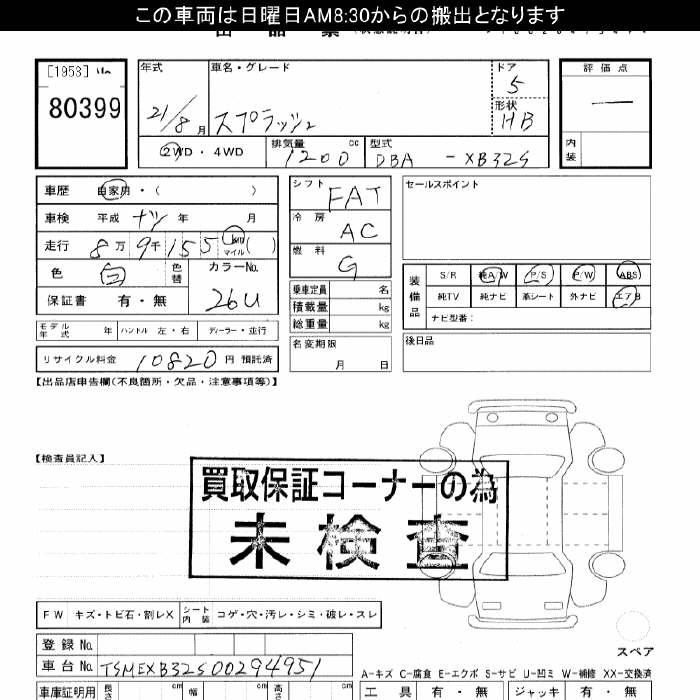 この車両は日曜日AM8:30からの搬出となります
[1953]
80399
年式 21/8 月
車名・グレード スプラッシュ
ドア 5
形状 HB
評価点 —
内装
2WD・4WD
排気量 1200 cc
型式 DBA - XB32S
車歴 自家用・( )
車検 平成 ナシ 年 月
走行 8万 9千 155 km マイル ( )
色 白 色替
カラーNo. 26U
保証書 有・無
シフト FAT
冷房 AC
燃料 G
乗車定員 名
積載量 kg
総重量 kg
名変期限 月 日
セールスポイント
装備品
S/R 純A/W P/S P/W ABS
純TV 純ナビ 革シート 外ナビ エアB
ナビ型番:
後日品
モデル年式 年 ハンドル 左・右 ディーラー・並行
リサイクル料金 10820 円 預託済
【出品店申告欄(不良箇所・欠品・注意事項等)】
【検査員記入】
買取保証コーナーの為
未検査
FW キズ・トビ石・割レX シート内装 コゲ・穴・汚レ・シミ・破レ・スレ
登録No.
車台No. TSMEXB32S00294951
スペア
A-キズ C-腐食 E-エクボ S-サビ U-凹ミ W-補修 XX-交換済
車庫証明用 長さ cm 幅 cm 高さ cm
工具 有・無 ジャッキ 有・無